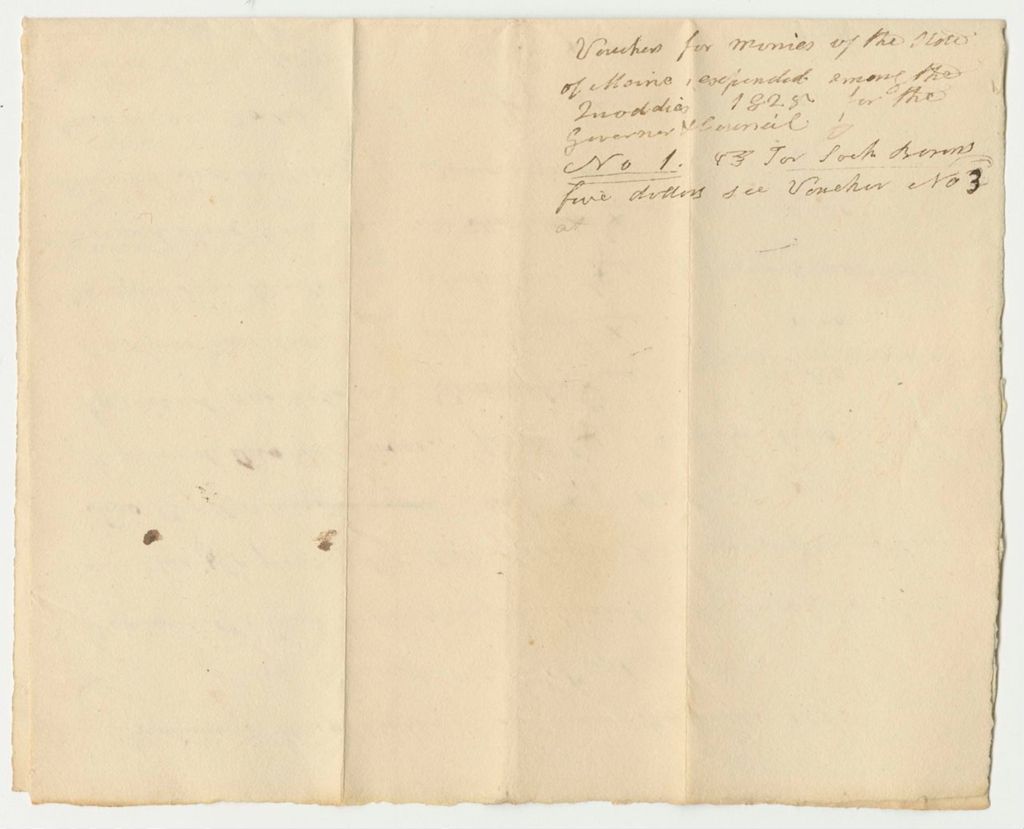 Vouchers for monies of the State
of Maine, expended among the
Quoddies 1828 for the
Governer & Council
No 1. for Sock
five dollars see Voucher No 3
at